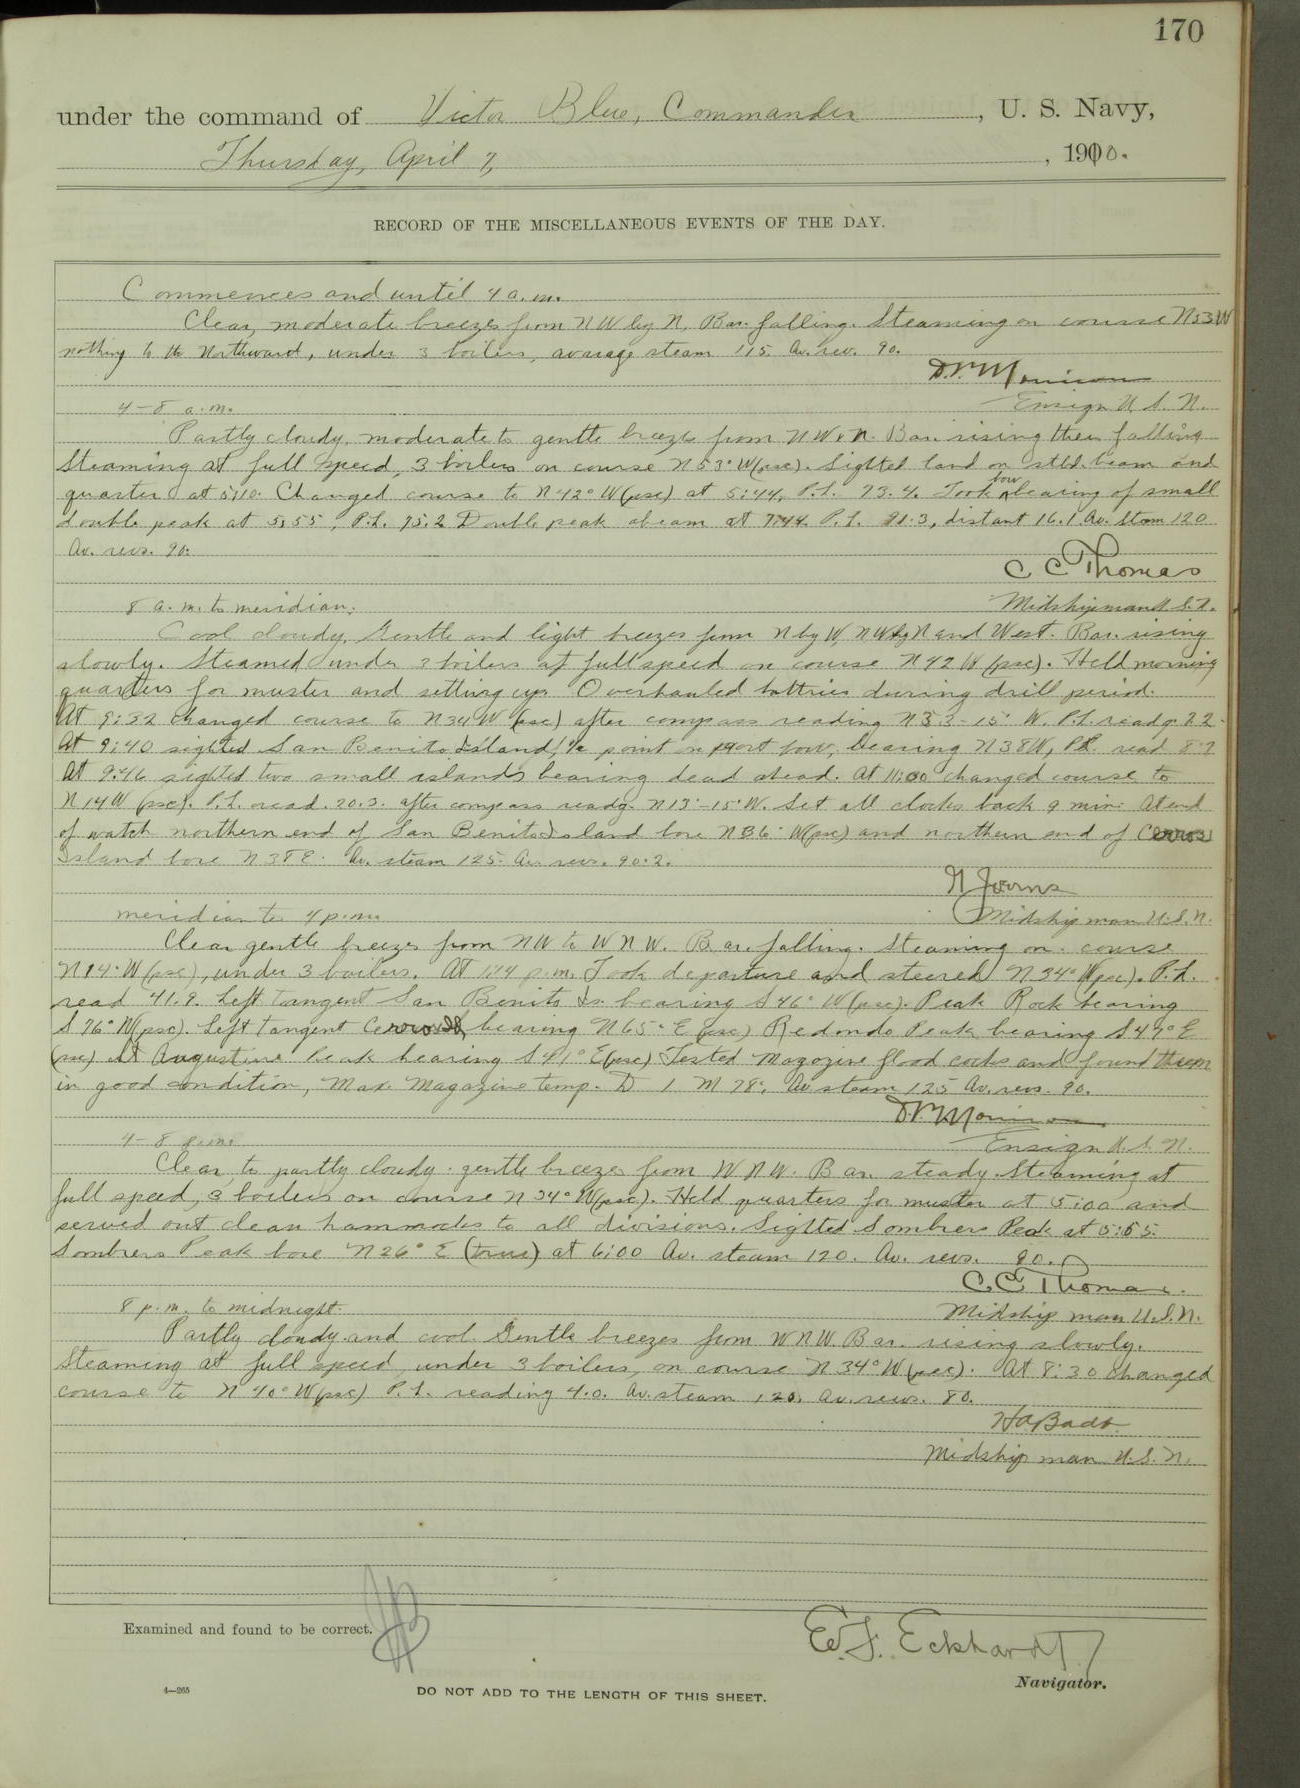 170
under the command of Victor Blue, Commander, U. S. Navy,
Thursday, April 7, 1910.
RECORD OF THE MISCELLANEOUS EVENTS OF THE DAY.
Commences and until 4 a.m.
Clear, moderate breezes from NW by N. Bar. falling. Steaming on course N53W
nothing to the Northward, under 3 boilers, avarage steam 115. Av. rev. 90.
Ensign U.S.N.
4-8 a.m.
Partly cloudy, moderate to gentle breezes from NW x N. Bar. rising then falling
Steaming at full speed, 3 boilers on course N53°W (psc). Sighted land on stbd. beam and
quarter at 5:10. Changed course to N42°W (psc) at 5:44, P.L. 73.4. Took bow bearing of small
double peak at 5:55, P.L. 75.2 Double peak abeam at 7:44. P.L. 91.3, distant 16.1 Av. Stm 120
Av. revs. 90.
C C Thomas
Midshipman U.S.N.
8 a.m. to meridian:
Cool cloudy, Gentle and light breezes from N by W, NW by N and West. Bar. rising
slowly. Steamed under 3 boilers at full speed on course N42W (psc). Held morning
quarters for muster and setting up. Overhauled battries during drill period.
At 9:32 changed course to N34W (psc) after compass reading N33-15' W. P.L. readg.
At 9:40 sighted San Benito Island, point on port bow, bearing N38W, P.L. read 8.7
At 9:46 sighted two small islands bearing dead ahead. At 11:00 changed course to
N14W (psc). P.L. read. 20.3. after compass readg. N13°-15'W. Set all clocks back 9 min. At end
of watch northern end of San Benito Island bore N36°W (psc) and northern end of Cerros
Island bore N38E. Av. steam 125. Av. revs. 90.2.
Midshipman U.S.N.
meridian to 4 p.m.
Clear gentle breezes from NW to WNW. Bar. falling. Steaming on course
N14°W (psc), under 3 boilers. At 1:44 p.m. Took departure and steered N34°W (psc). P.L.
read 41.9. Left tangent San Benito Is. bearing S46°W (psc). Peak Rock bearing
S76°W (psc). Left tangent Cerros Is. bearing N65°E (psc) Redondo Peak bearing S49°E
(psc) St Augustine Peak bearing S41°E (psc) Tested Magazine flood cocks and found them
in good condition, Max Magazine temp. D 1 M 78°. Av steam 125 Av. revs. 90.
Ensign U.S.N.
4-8 p.m.
Clear to partly cloudy. gentle breezes from WNW. Bar. steady. Steaming at
full speed, 3 boilers on course N34°W (psc). Held quarters for muster at 5:00 and
served out clean hammocks to all divisions. Sighted Sombrero Peak at 5:55.
Sombrero Peak bore N26°E (true) at 6:00 Av. steam 120. Av. revs. 90.
C.C. Thomas.
Midshipman U.S.N.
8 p.m. to midnight.
Partly cloudy and cool. Gentle breezes from WNW. Bar. rising slowly.
Steaming at full speed, under 3 boilers, on course N34°W (psc). At 8:30 changed
course to N40°W (psc) P.L. reading 4.0. Av. steam 120. Av. revs. 80.
HABadt.
Midshipman U.S.N.
Examined and found to be correct.
E. F. Eckhardt
Navigator.
4—265
DO NOT ADD TO THE LENGTH OF THIS SHEET.